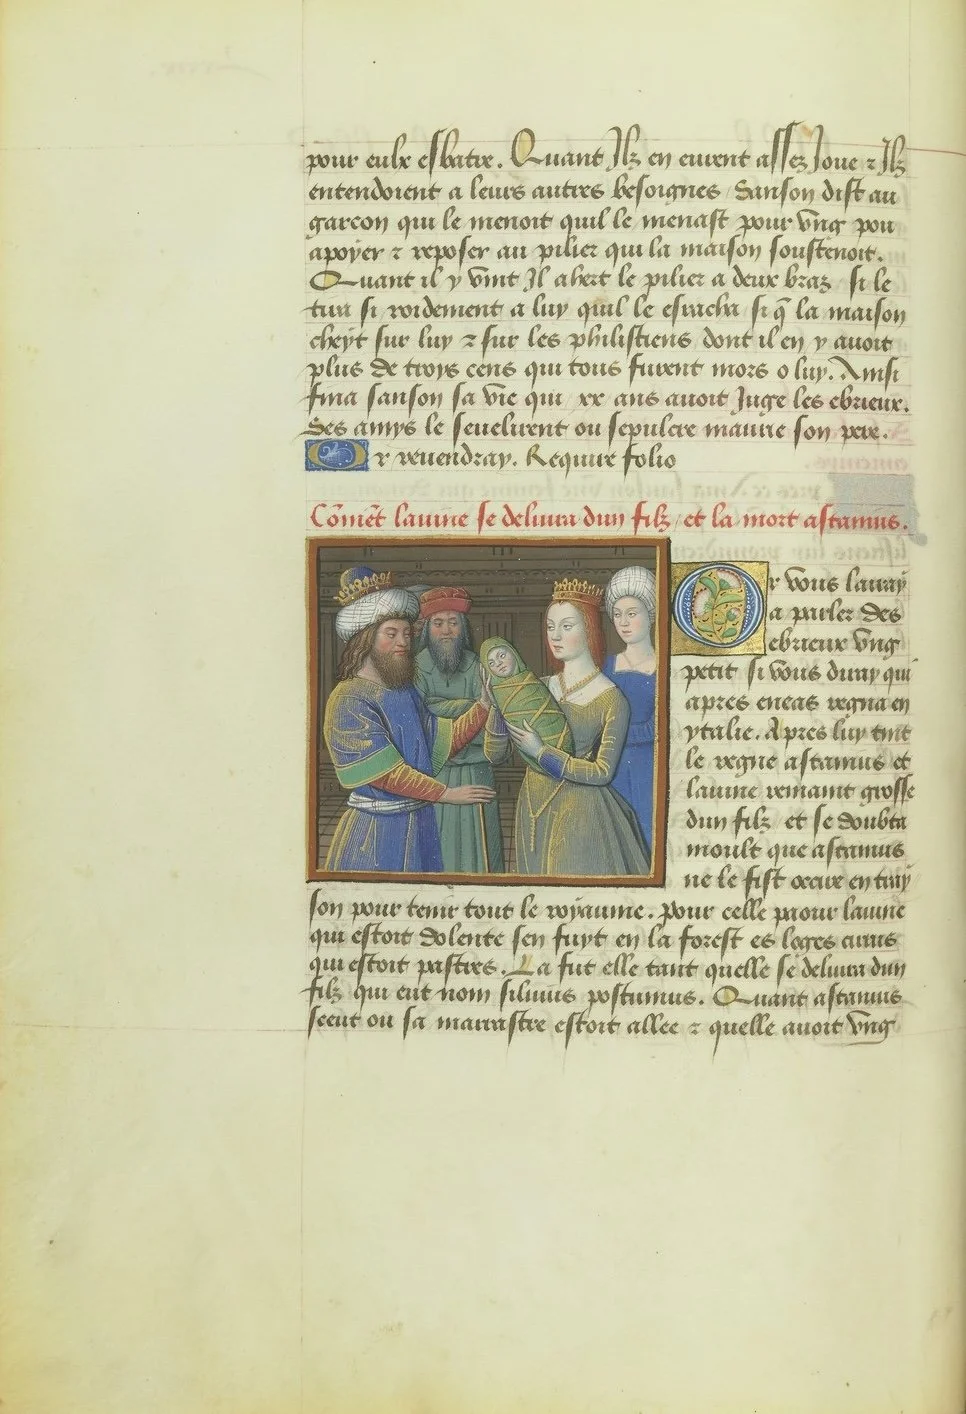 pour eulx esbatre. Quant Ilz en eurent assez Joue ⁊ Ilz
entendoient a leurs autres besoignes Sanson dist au
garcon qui le menoit quil le menast pour vng pou
apoyer ⁊ reposer au pilier qui la maison soustenoit.
Quant il y vint Il ahert le pilier a deux braz si le
tira si roidement a luy quil le esracha si q̄ la maison
cheyt sur luy ⁊ sur les philistiens dont il en y auoit
plus de troys cens qui tous furent mors o luy. Ainsi
fina sanson sa vie qui xx ans auoit Juge les ebrieux.
Ses amys le seuelirent ou sepulcre manue son pere.
Or reuendray. Require folio
Cōmēt lauine se deliura dun filz et la mort astamus.
Or vous lairay
a parler des
ebrieux vng
petit si vous diray qui
apres eneas regna en
ytalie. Apres luy tint
le regne astamus et
lauine remaint grosse
dun filz et se doubta
moult que astamus
ne le fist occire en tray
son pour tenir tout le royaume. pour celle paour lauine
qui estoit dolente sen fuyt en la forest es loges
qui estoit pastres. La fut elle tant quelle se deliura dun
filz qui eut nom siluius postumus. Quant astamus
sceut ou sa marrastre estoit allee ⁊ quelle auoit vng